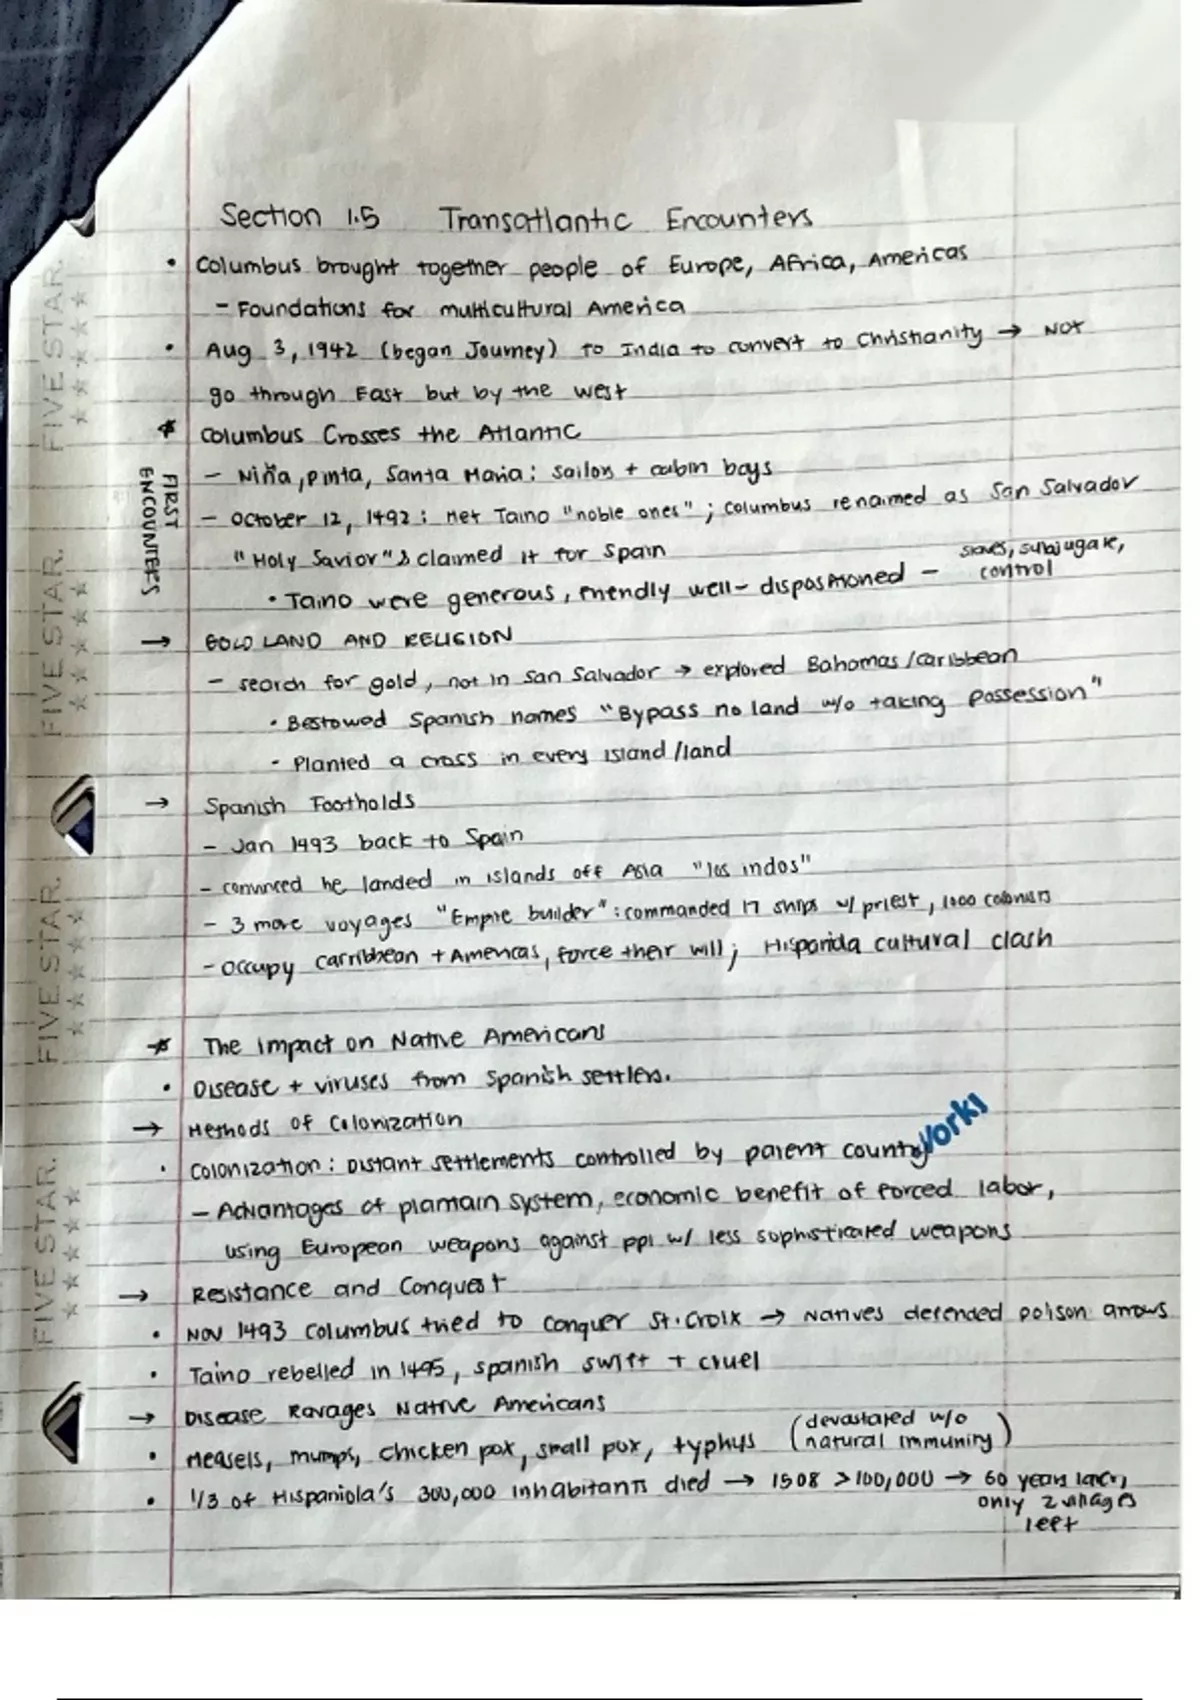 Section 1.5 Transatlantic Encounters
• Columbus brought together people of Europe, Africa, Americas
- Foundations for multicultural America
• Aug 3, 1942 (began Journey) to India to convert to Christianity → NOT
go through East but by the west
* Columbus Crosses the Atlantic
FIRST ENCOUNTERS
- Niña, Pinta, Santa Maria: sailors + cabin boys
- October 12, 1492: Met Taino "noble ones"; Columbus renaimed as San Salvador
"Holy Savior" & claimed it for Spain
• Taino were generous, friendly well-dispositioned - slaves, subjugate,
control
→ GOLD LAND AND RELIGION
- search for gold, not in San Salvador → explored Bahomas/Caribbean
• Bestowed Spanish names "Bypass no land w/o taking possession"
• Planted a cross in every island/land
→ Spanish Footholds
- Jan 1493 back to Spain
- convinced he landed in islands off Asia "los indos"
- 3 more voyages "Empire builder": commanded 17 ships w/ priest, 1000 colonists
- Occupy carribbean + Americas, force their will; cultural clash
* The Impact on Native Americans
• Disease + viruses from Spanish settlers.
→ Methods of Colonization
• Colonization: Distant settlements controlled by parent country
- Advantages of system, economic benefit of forced labor,
using European weapons against ppl w/ less sophisticated weapons
→ Resistance and Conquest
• Nov 1493 Columbus tried to conquer St. Croix → Natives defended poison arrows
• Taino rebelled in 1495, spanish swift + cruel
→ Disease Ravages Native Americans
• Measels, mumps, chicken pox, small pox, typhys (devastated w/o
natural immunity)
• 1/3 of Hispaniola's 300,000 inhabitants died → 1508 >100,000 → 60 years later,
only 2 villages
left
FIVE STAR.
FIVE STAR.
FIVE STAR.
FIVE STAR.